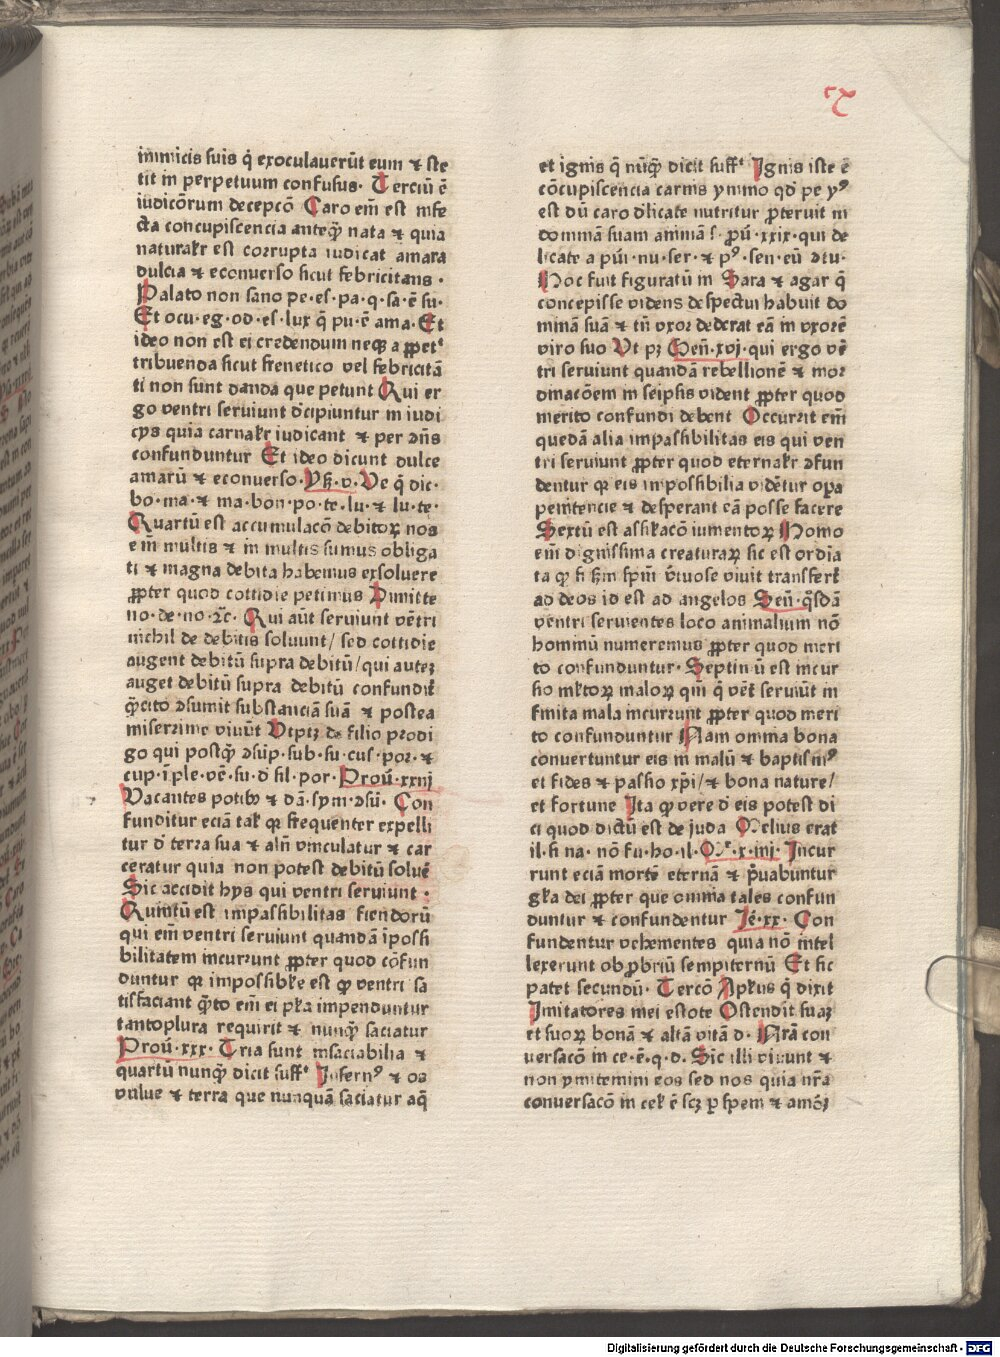 inimicis suis q̇ exoculauerūt eum ⁊ ste
tit in perpetuum confusus· Terciū ē
iudicōrum decepcō Caro em̄ est infe
cta concupiscencia anteq̄ȝ nata ⁊ quia
naturalr̄ est corrupta iudicat amara
dulcia ⁊ econuerso sicut febricitans·
Palato non sano pe·es·pa·q·sa·ē su·
Et ocu·eg·od·es·lux q̄ pu·ē ama·Et
ideo non est ei credendum neqȝ a ꝓpet͛
tribuenda sicut frenetico vel febricitā
ti non sunt danda que petunt Qui er
go ventri seruiunt d̄cipiuntur in iudi
cijs quia carnalr̄ iudicant ⁊ per ↄn̄s
confunduntur Et ideo dicunt dulce
amarū ⁊ econuerso· Ysa̅·v·Ve q̇ dic·
bo·ma·⁊ ma·bon·po·te·lu·⁊ lu·te·
Quartū est accumulacō debitoꝝ nos
em̄ in multis ⁊ in multis sumus obliga
ti ⁊ magna debita habemus exsoluere
ꝓpter quod cottidie petimus Dimitte
no·de·no·⁊c̄· Qui aūt seruiunt vētri
nichil de debitis soluunt/ sed cottidie
augent debitū supra debitū/qui auteȝ
auget debitū supra debitū confundit᷑
q̄ȝcito ↄsumit substanciā suā ⁊ postea
miserrime viuūt Vtptȝ de filio prodi
go qui postq̄ȝ ↄsūp·sub·su·cus·por·⁊
cup·īple·vē·su·d̄ sil·por· Proū·xxiij
Vacantes potibꝫ ⁊ dā·sym·ↄsū· Con
funditur eciā talr̄ qꝛ frequenter expelli
tur d̄ terra sua ⁊ aliī vinculatur ⁊ car
ceratur quia non potest debitū soluē
Sic accidit hijs qui ventri seruiunt·
Quintū est impassibilitas fiendorū
qui em̄ ventri seruiunt quandā īpossi
bilitatem incurrunt ꝓpter quod cōfun
duntur qꝛ impossibile est ꝙ ventri sa
tisfaciant q̄ȝto em̄ ei pl̄a impenduntur
tantoplura requirit ⁊ nunq̄ȝ saciatur
Proū·xxx· Tria sunt insaciabilia ⁊
quartū nunq̄ȝ dicit suff͛ Infernꝰ ⁊ os
vulue ⁊ terra que nunquā saciatur aq̄
et ignis q̄ nūq̄ȝ dicit suff͛ Ignis iste ē
cōcupiscencia carnis ymmo qd̄ pe yꝰ
est dū caro d̄licate nutritur ꝓteruit in
dominā suam animā ꝓū·xxix·qui de
licate a pūi·nu·ser·⁊ pꝰ·sen·eū ↄtu·
Hoc fuit figuratū in Sara ⁊ agar q̄
concepisse videns despectui habuit do
minā suā ⁊ tn̄ vxor dederat eā in vxorē
viro suo Vt pȝ Gen̄·xvj·qui ergo vē
tri seruiunt quandā rebellionē ⁊ mor
dinacōem in seipsis vident ꝓpter quod
merito confundi debent Occurrit em̄
quedā alia impassibilitas eis qui ven
tri seruiunt ꝓpter quod eternalr̄ ↄfun
dentur qꝛ eis impossibilia vidētur opa̅
penitencie ⁊ desperant eā posse facere
Sextū est assilacō iumentoꝝ Homo
em̄ dignissima creaturaꝝ sic est ordīa
ta ꝙ si ẜm spm̄ v̄tuose viuit transfert᷑
ad deos id est ad angelos Sen̄·q̄sdā
ventri seruientes loco animalium nō
hominū numeremus ꝓpter quod meri
to confunduntur· Septimū est incur
sio mltoꝝ maloꝝ qui q̄ vēt᷑ seruiūt in
finita mala incurrunt ꝓpter quod meri
to confunduntur Nam omnia bona
conuertuntur eis in malū ⁊ baptismꝰ
et fides ⁊ passio xp̄i/⁊ bona nature/
et fortune Ita ꝙ vere d̄ eis potest di
ci quod dictū est de juda Melius erat
il·si na·nō fu·ho·il·Mr͛·x·iiij· Incur
runt eciā morte eternā ⁊ p̄uabuntur
gl̄ia dei ꝓpter que omnia tales confun
duntur ⁊ confundentur Je͛·xx· Con
fundentur vehementes quia nō intel
lexerunt obꝓbriū sempiternū Et sic
patet secundū· Tercō Apl̄us q̇ dixit
Imitatores mei estote Ostendit suaȝ
et suoꝝ bonā ⁊ altā vitā d· Nr̄a con
uersacō in ce·ē·q·d· Sic illi viuunt ⁊
non ymitemini eos sed nos quia nr̄a
conuersacō in cel᷑ ē scȝ p spem ⁊ amōȝ
Digitalisierung gefördert durch die Deutsche Forschungsgemeinschaft - DFG